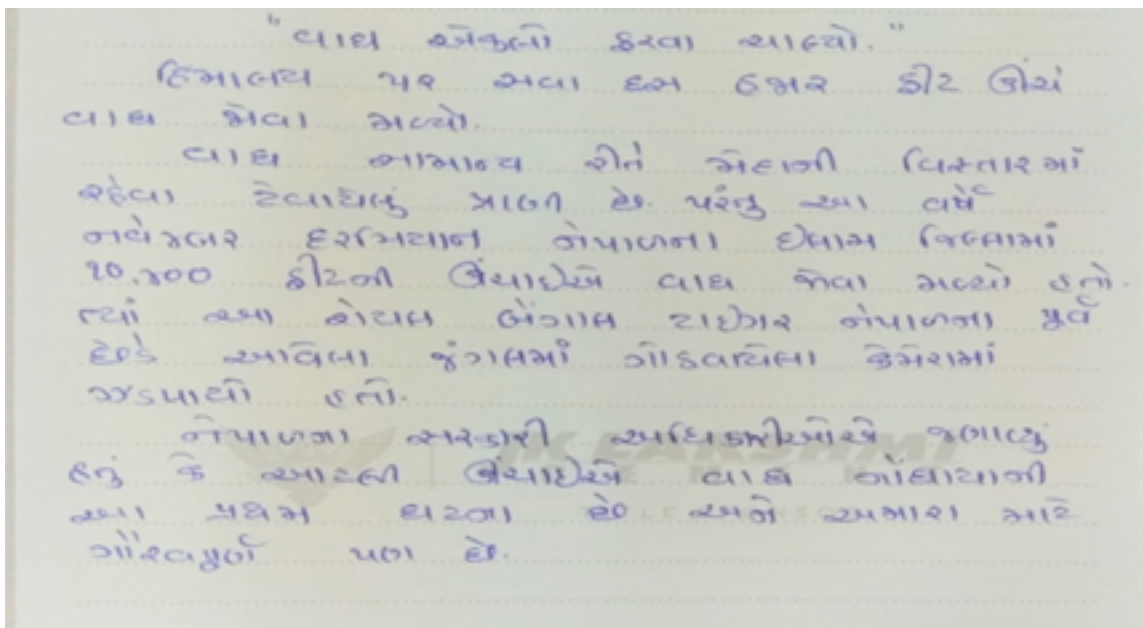 "વાઘ એકલો ફરવા ચાલ્યો."
હિમાલય પર સવા દસ હજાર ફીટ ઊંચે
વાઘ જોવા મળ્યો.
વાઘ સામાન્ય રીતે મેદાની વિસ્તારમાં
રહેવા ટેવાયેલું પ્રાણી છે. પરંતુ આ વર્ષે
નવેમ્બર દરમિયાન નેપાળના ઈલામ જિલ્લામાં
૧૦,૪૦૦ ફીટની ઊંચાઈએ વાઘ જોવા મળ્યો હતો.
ત્યાં આ રોયલ બેંગાલ ટાઈગર નેપાળના પૂર્વ
છેડે આવેલા જંગલમાં ગોઠવાયેલા કેમેરામાં
ઝડપાયો હતો.
નેપાળના સરકારી અધિકારીઓએ જણાવ્યું
હતું કે આટલી ઊંચાઈએ વાઘ નોંધાયાની
આ પ્રથમ ઘટના છે અને અમારા માટે
ગૌરવપૂર્ણ પણ છે.
JK LAKSHMI
CEMENT